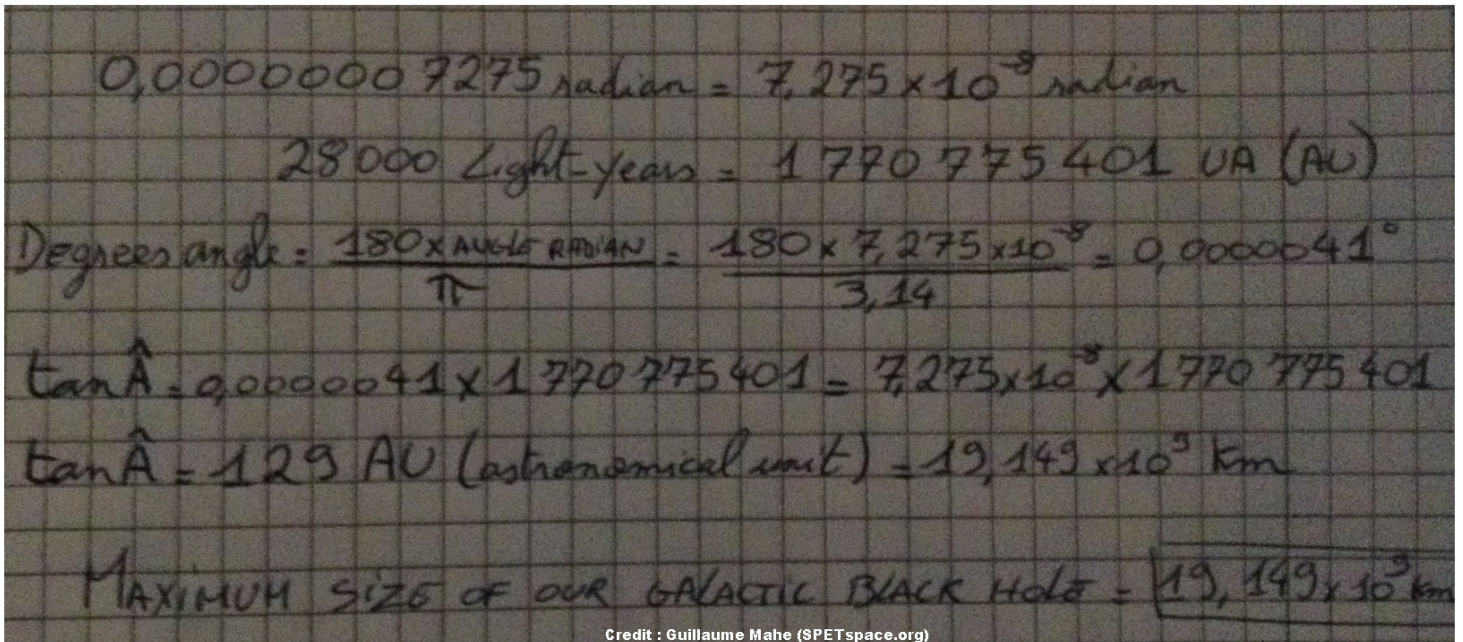 0,00000007275 radian = 7,275 × 10⁻⁸ radian
28000 Light-years = 1 770 775 401 UA (AU)
Degrees angle = 180 × ANGLE RADIAN / π = 180 × 7,275 × 10⁻⁸ / 3,14 = 0,0000041°
tan Â = 0,0000041 × 1 770 775 401 = 7,275 × 10⁻⁸ × 1 770 775 401
tan Â = 129 AU (astronomical unit) = 19,149 × 10⁹ Km
MAXIMUM SIZE OF OUR GALACTIC BLACK HOLE = 19,149 × 10⁹ km
Credit : Guillaume Mahe (SPETspace.org)